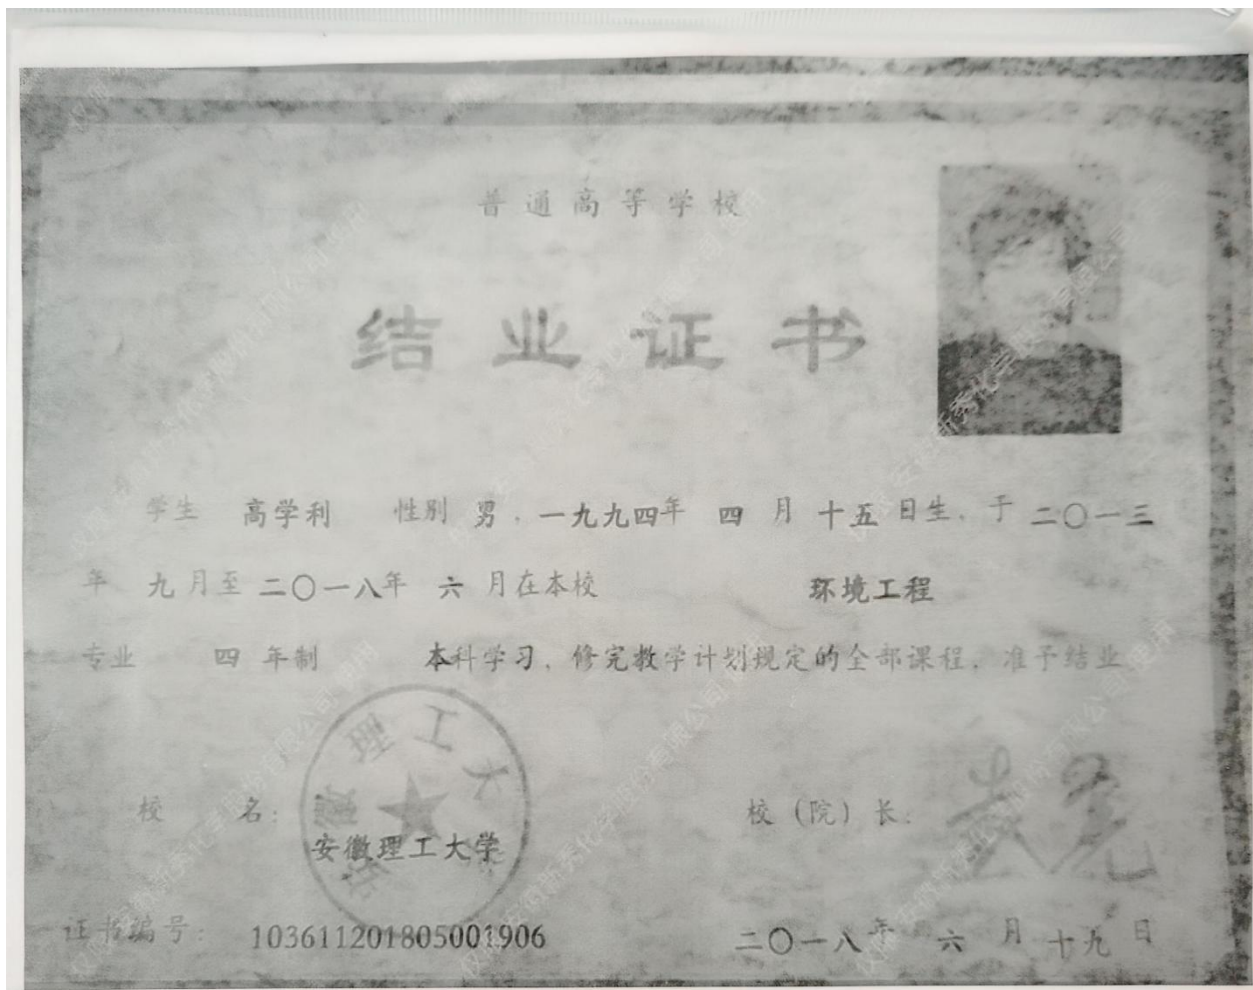 普通高等学校
结业证书
学生 高学利 性别 男，一九九四年 四 月 十五日生，于 二〇一三
年 九月至 二〇一八年 六 月在本校 环境工程
专业 四 年制 本科学习，修完教学计划规定的全部课程，准予结业。
校 名： 校（院）长：
安徽理工大学
证书编号： 103611201805001906 二〇一八年 六 月 十九 日